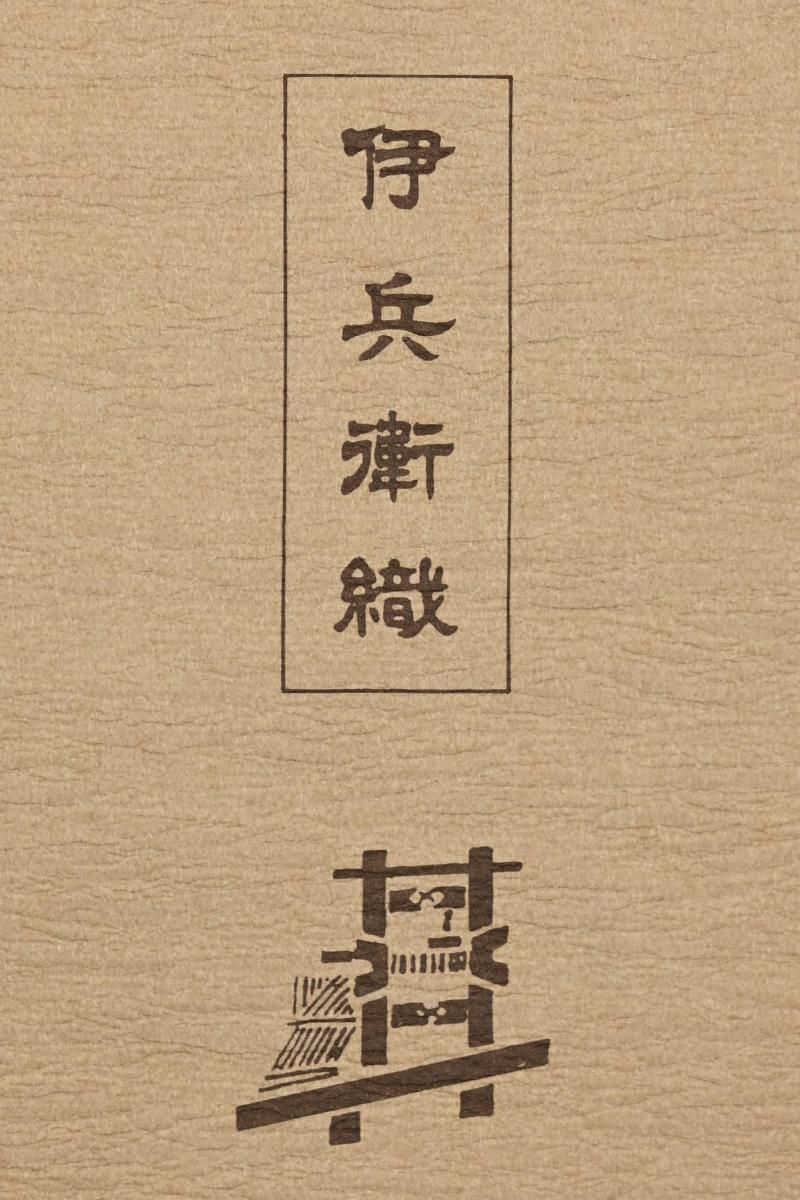 伊兵衛織